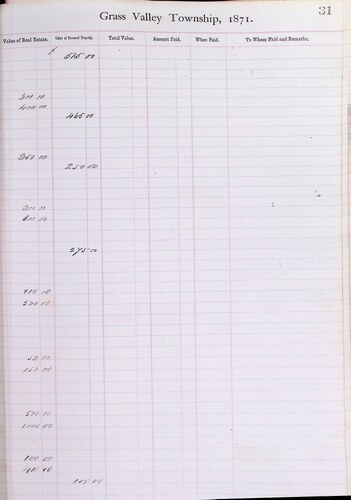 Grass Valley Township, 1871.
31
Value of Real Estate. Value of Personal Property. Total Value. Amount Paid. When Paid. To Whom Paid and Remarks.
515 00
300 00
400 00
465 00
350 00
250 00
600 00
275 00
400 00
50 00
150 00
500 00
1000 00
100 00
400 00
100 00